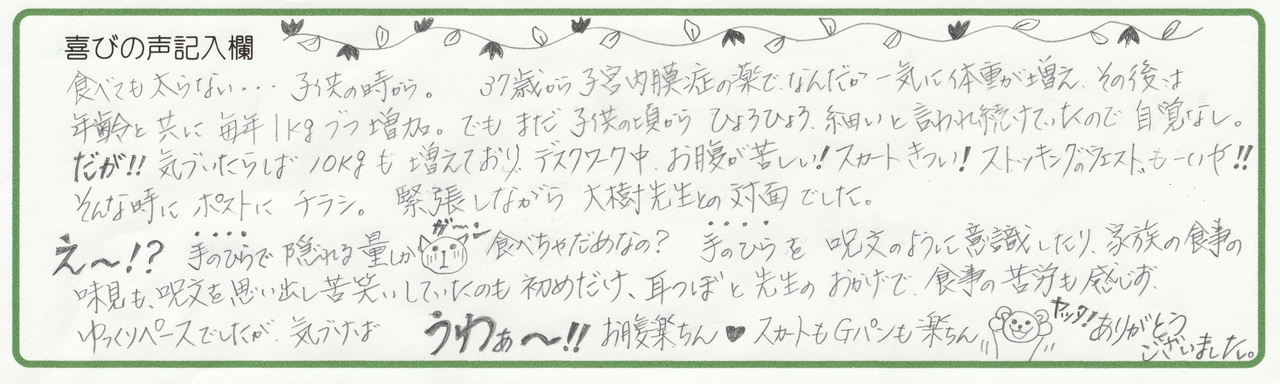 喜びの声記入欄
食べても太らない・・・ 子供の時から。 37歳から子宮内膜症の薬で、なんだか一気に体重が増え、その後は
年齢と共に 毎年1kgづつ増加。でも まだ 子供の頃から ひょろひょろ、細いと言われ続けていたので 自覚なし。
だが!! 気づいたらば 10kgも 増えており、デスクワーク中、お腹が苦しい! スカートきつい! ストッキングのウェスト、もーいや!!
そんな時に ポストに チラシ。 緊張しながら 大樹先生との対面でした。
え〜!? 手のひらで 隠れる量しか ガーン 食べちゃだめなの? 手のひらを 呪文のように意識したり、家族の食事の
味見も、呪文を思い出し苦笑いしていたのも 初めだけ、耳つぼと先生の おかげで、食事の苦労も感じず、
ゆっくりペースでしたが、気づけば うわぁ〜!! お腹楽ちん♥ スカートもGパンも楽ちん ヤッタ! ありがとう
ございました。